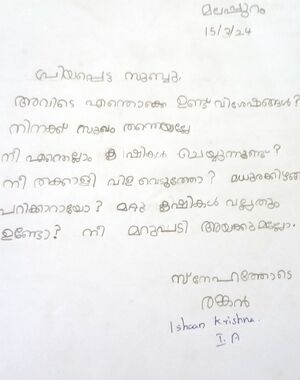 മലപ്പുറം
15/3/24
പ്രിയപ്പെട്ട സുഞ്ചു,
അവിടെ എന്തൊക്കെ ഉണ്ട് വിശേഷങ്ങൾ?
നിനക്ക് സുഖം തന്നെയല്ലേ
നീ എന്തെല്ലാം കൃഷികൾ ചെയ്യുന്നുണ്ട്?
നീ തക്കാളി വിളവെടുത്തോ? മധുരക്കിഴങ്ങ്
പറിക്കാറായോ? മറ്റു കൃഷികൾ വല്ലതും
ഉണ്ടോ? നീ മറുപടി അയക്കുമല്ലോ.
സ്നേഹത്തോടെ
രങ്കൻ
Ishaan Krishna.
I. A